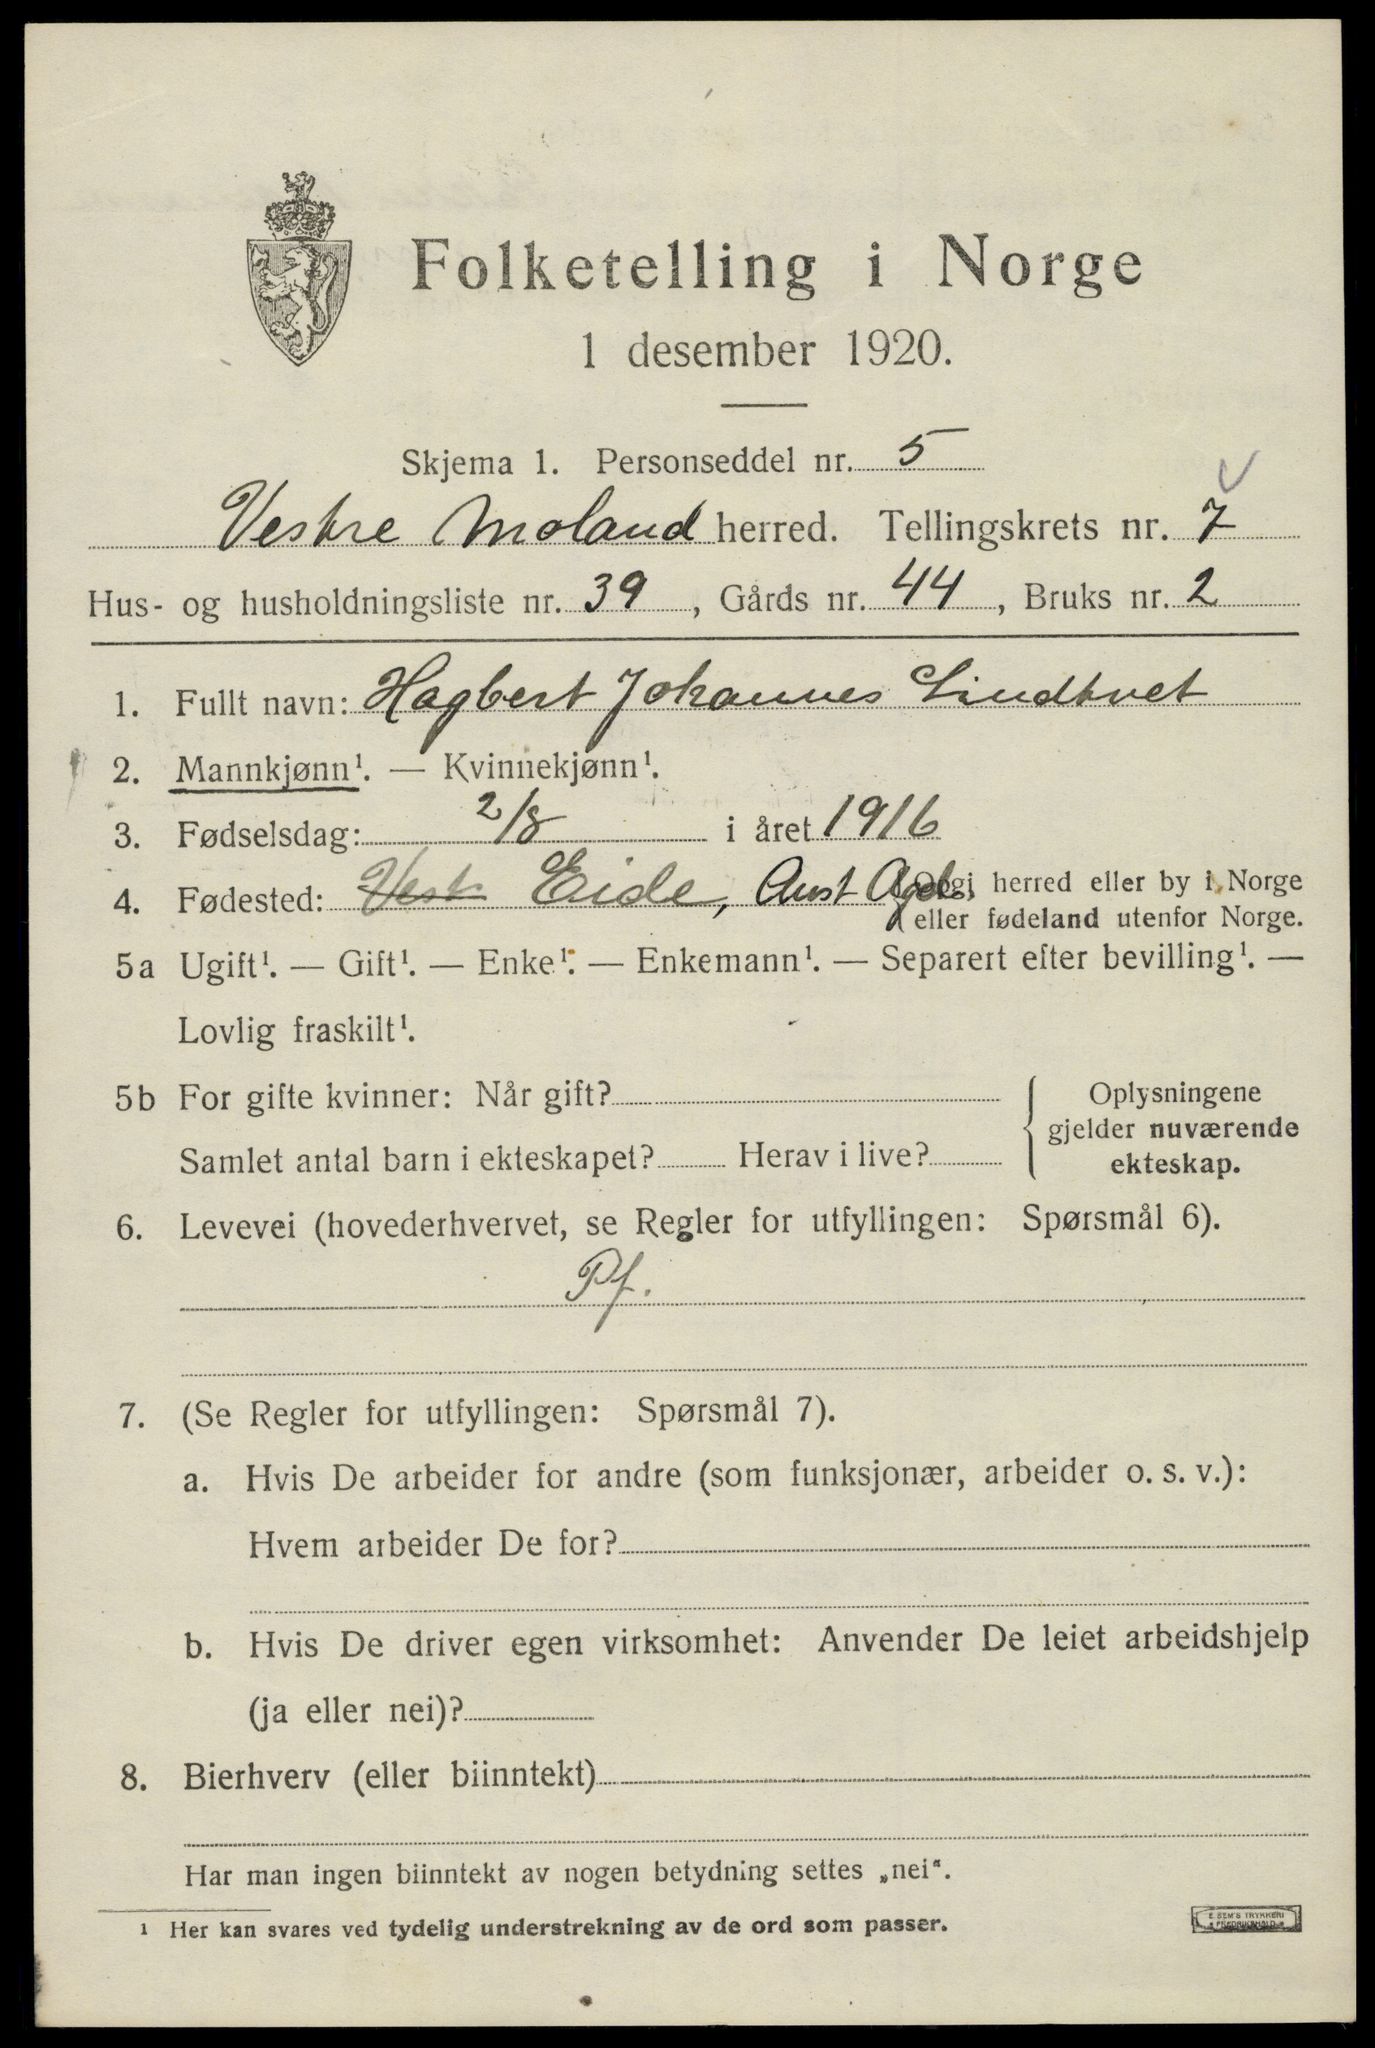 Folketelling i Norge
1 desember 1920.
Skjema 1. Personseddel nr. 5
Vestre Moland herred. Tellingskrets nr. 7
Hus- og husholdningsliste nr. 39, Gårds nr. 44, Bruks nr. 2
1. Fullt navn: Hagbert Johannes Lindtvet
2. Mannkjønn¹. — Kvinnekjønn¹.
3. Fødselsdag: 2/8 i året 1916
4. Fødested: Vest Eide, Aust Agd. Opgi herred eller by i Norge
eller fødeland utenfor Norge.
5a Ugift¹. — Gift¹. — Enke¹. — Enkemann¹. — Separert efter bevilling¹. —
Lovlig fraskilt¹.
5b For gifte kvinner: Når gift?
Samlet antal barn i ekteskapet? Herav i live?
Oplysningene
gjelder nuværende
ekteskap.
6. Levevei (hovederhvervet, se Regler for utfyllingen: Spørsmål 6).
Pf.
7. (Se Regler for utfyllingen: Spørsmål 7).
a. Hvis De arbeider for andre (som funksjonær, arbeider o. s. v.):
Hvem arbeider De for?
b. Hvis De driver egen virksomhet: Anvender De leiet arbeidshjelp
(ja eller nei)?
8. Bierhverv (eller biinntekt)
Har man ingen biinntekt av nogen betydning settes „nei“.
¹ Her kan svares ved tydelig understrekning av de ord som passer.
E. SEM'S TRYKKERI
FREDRIKSHALD